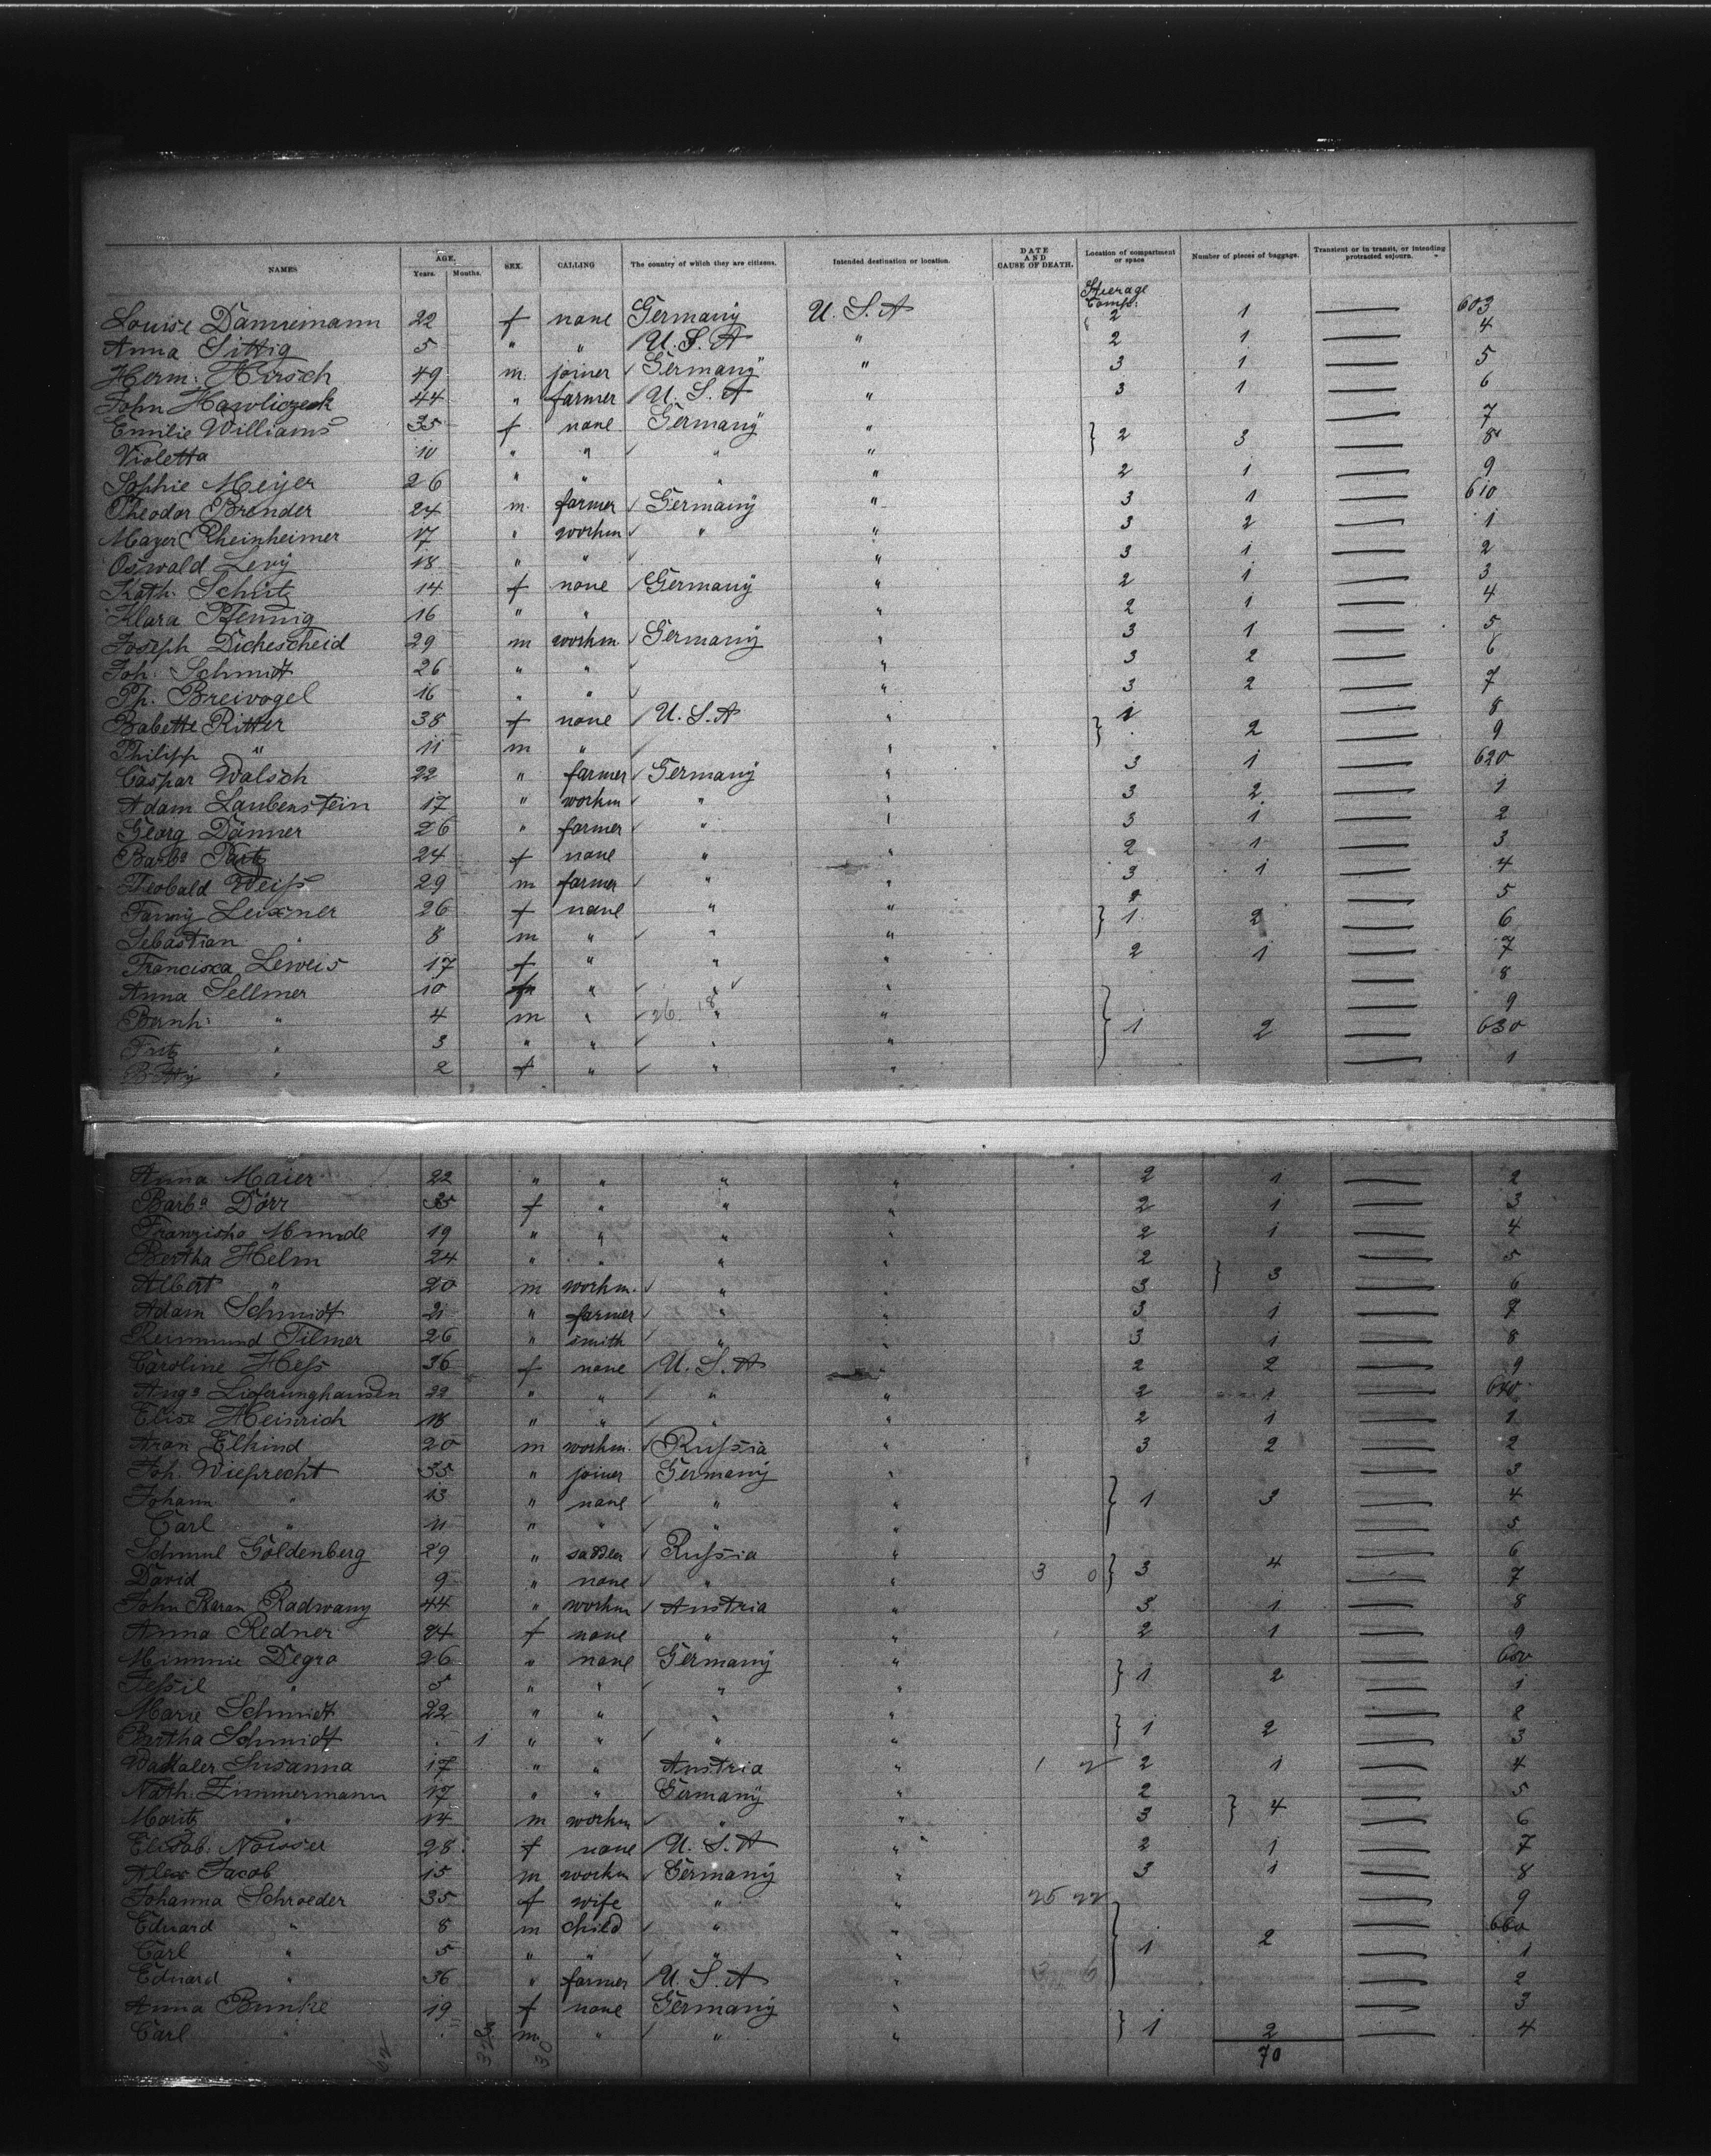 NAMES AGE. Years. Months. SEX. CALLING The country of which they are citizens. Intended destination or location. DATE AND CAUSE OF DEATH. Location of compartment or space Number of pieces of baggage. Transient or in transit, or intending protracted sojourn.
Steerage Comp:
Louise Dannemann 22 f none Germany U.S.A 2 1 — 603
Anna Sittig 5 " " U.S.A " 2 1 — 4
Herm: Hirsch 49 m. joiner Germany " 3 1 — 5
John Hawliczek 44 " farmer U.S.A " 3 1 — 6
Emilie Williams 35 f none Germany " } 2 3 — 7
Violetta 10 " " " " — 8
Sophie Meyer 26 " " " " 2 1 — 9
Theodor Brender 24 m. farmer Germany " 3 1 — 610
Mayer Rheinheimer 17 " workm " " 3 2 — 1
Oswald Levy 18 " " " 3 1 — 2
Kath: Schütz 14 f none Germany " 2 1 — 3
Klara Pfennig 16 " " " 2 1 — 4
Joseph Dickescheid 29 m workm Germany " 3 1 — 5
Joh: Schmidt 26 " " " 3 2 — 6
Ph. Breivogel 16 " " " 3 2 — 7
Babette Ritter 38 f none U.S.A " } 1 2 — 8
Philipp " 11 m " " — 9
Caspar Walsch 22 " farmer Germany " 3 1 — 620
Adam Laubenstein 17 " workm " " 3 2 — 1
Georg Dänner 26 " farmer " " 3 1 — 2
Barba 24 f none " " 2 1 — 3
Theobald Weiß 29 m farmer " " 3 1 — 4
Fanny Leixner 26 f none " " } 1 2 — 5
Sebastian " 8 m " " " — 6
Francisca Leweis 17 f " " " 2 1 — 7
Anna Sellmer 10 f " " " — 8
Bernh: " 4 m " " " } 1 2 — 9
Fritz " 3 " " " " — 630
Betty " 2 f " " " — 1
Anna Maier 22 " " " " 2 1 — 2
Barba Dörr 35 f " " " 2 1 — 3
Franziska 19 " " " " 2 1 — 4
Bertha Helm 24 " " " " 2 } 3 — 5
Albert " 20 m workm. " " 3 — 6
Adam Schmidt 21 " farmer " " 3 1 — 7
Reimund Tilmer 26 " smith " " 3 1 — 8
Caroline Heß 36 f none U.S.A " 2 2 — 9
Auga Lieferinghausen 22 " " " " 2 1 — 640
Elise Heinrich 18 " " " " 2 1 — 1
Aran Elkind 20 m workm. Rußia " 3 2 — 2
Joh. Wieprecht 35 " joiner Germany " — 3
Johann " 13 " none " " } 1 3 — 4
Carl " 11 " " " " — 5
Schmul Goldenberg 29 " saddler Rußia " } 3 4 — 6
David " 9 " none " " 3 0 — 7
John Radwany 44 " workm Austria " 3 1 — 8
Anna Redner 24 f none " " 2 1 — 9
Minnie Degro 26 " none Germany " } 1 2 — 650
Jeßie " 5 " " " " — 1
Marie Schmidt 22 " " " " } 1 2 — 2
Bertha Schmidt 1 " " " " — 3
Susanna 17 " " Austria " 2 1 — 4
Nath: Zimmermann 17 " " Germany " 2 } 4 — 5
Moritz " 14 m workm " " 3 — 6
Elisab: Noisser 28 f none U.S.A " 2 1 — 7
Alex Jacob 15 m workm Germany " 3 1 — 8
Johanna Schroeder 35 f wife " " 25 22 — 9
Eduard " 8 m child " " } 1 2 — 660
Carl " 5 " " " " — 1
Eduard " 36 " farmer U.S.A " — 2
Anna Bunke 19 f none Germany " } 1 2 — 3
Carl " m. " " " — 4
70